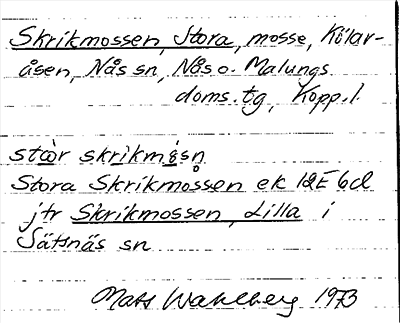 Skrikmossen, Stora, mosse, Kölar-
åsen, Nås sn, Nås o. Malungs
doms. tg, Kopp. l.
stòr skrikmɨ̀sn̥
Stora Skrikmossen ek 12E 6d
jfr Skrikmossen, Lilla i
Sätsnäs sn
Mats Wahlberg 1973